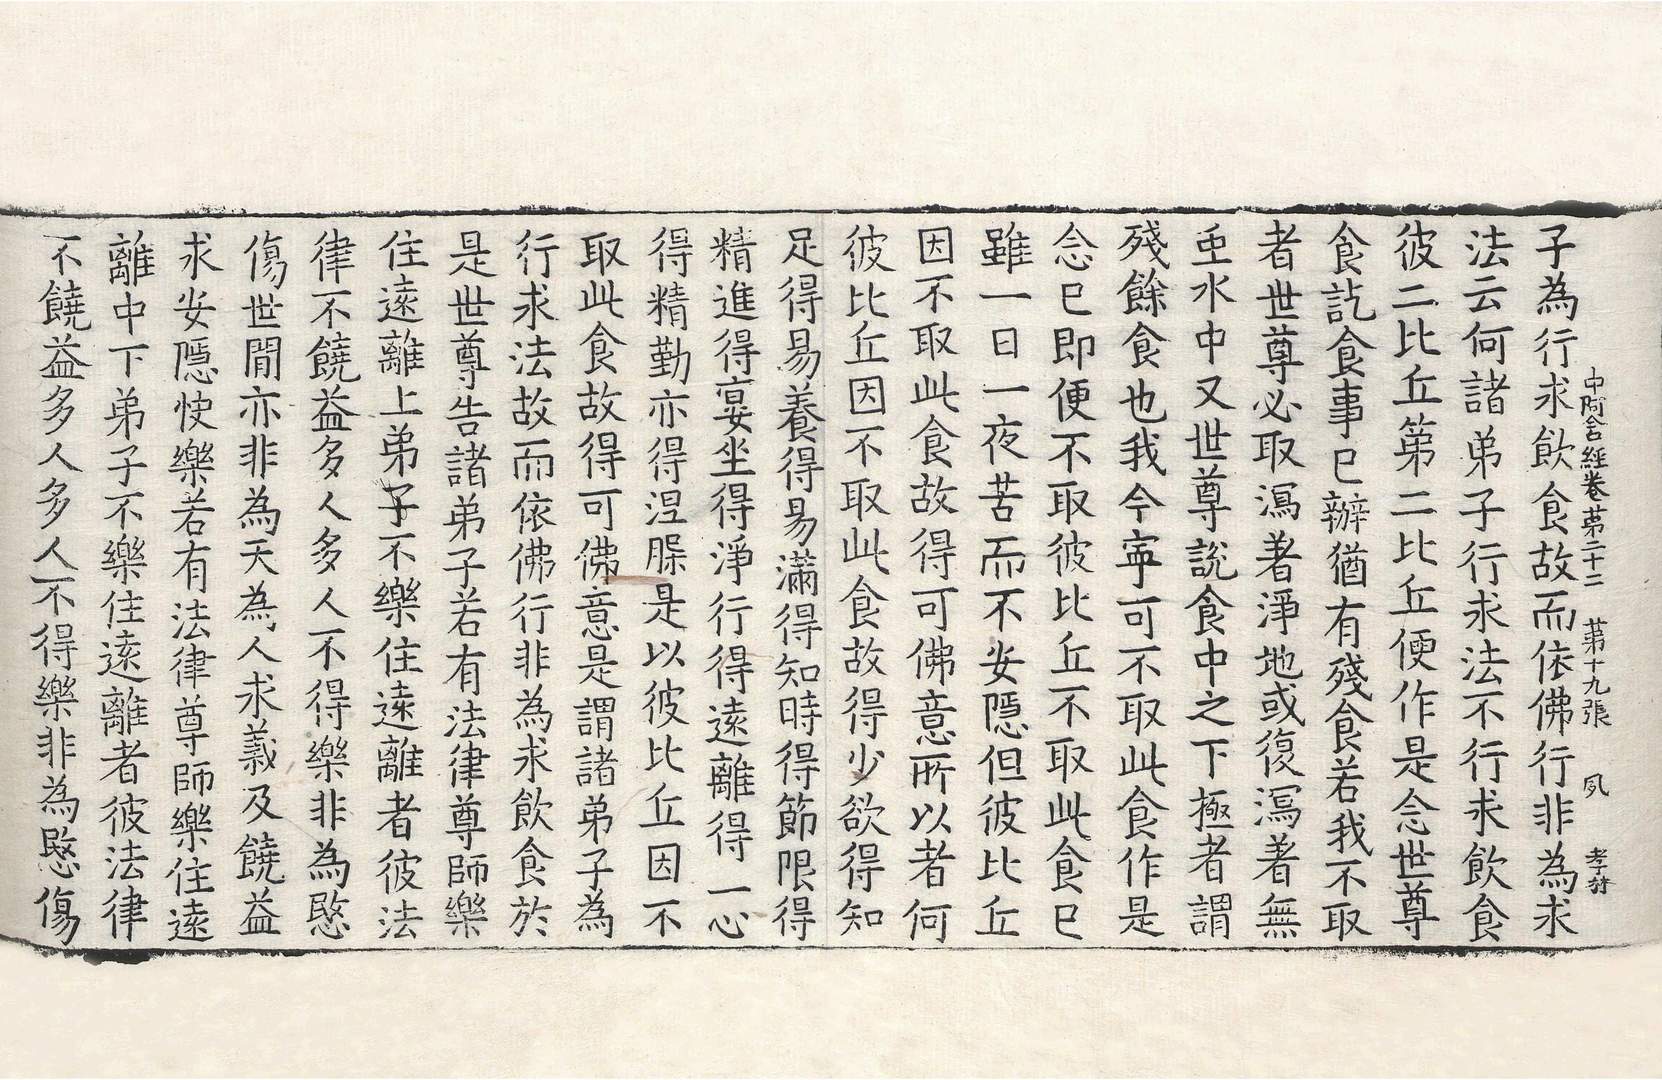 中阿含經卷苐二十二　苐十九張　夙　孝犲
子為行求飲食故而依佛行非為求
法云何諸弟子行求法不行求飲食
彼二比丘第二比丘便作是念世尊
食訖食事已辦猶有殘食若我不取
者世尊必取瀉著淨地或復瀉著無
虫水中又世尊說食中之下極者謂
殘餘食也我今寧可不取此食作是
念已即便不取彼比丘不取此食已
雖一日一夜苦而不安隱但彼比丘
因不取此食故得可佛意所以者何
彼比丘因不取此食故得少欲得知
足得易養得易滿得知時得節限得
精進得宴坐得淨行得遠離得一心
得精勤亦得涅槃是以彼比丘因不
取此食故得可佛意是謂諸弟子為
行求法故而依佛行非為求飲食於
是世尊告諸弟子若有法律尊師樂
住遠離上弟子不樂住遠離者彼法
律不饒益多人多人不得樂非為愍
傷世間亦非為天為人求義及饒益
求安隱快樂若有法律尊師樂住遠
離中下弟子不樂住遠離者彼法律
不饒益多人多人不得樂非為愍傷